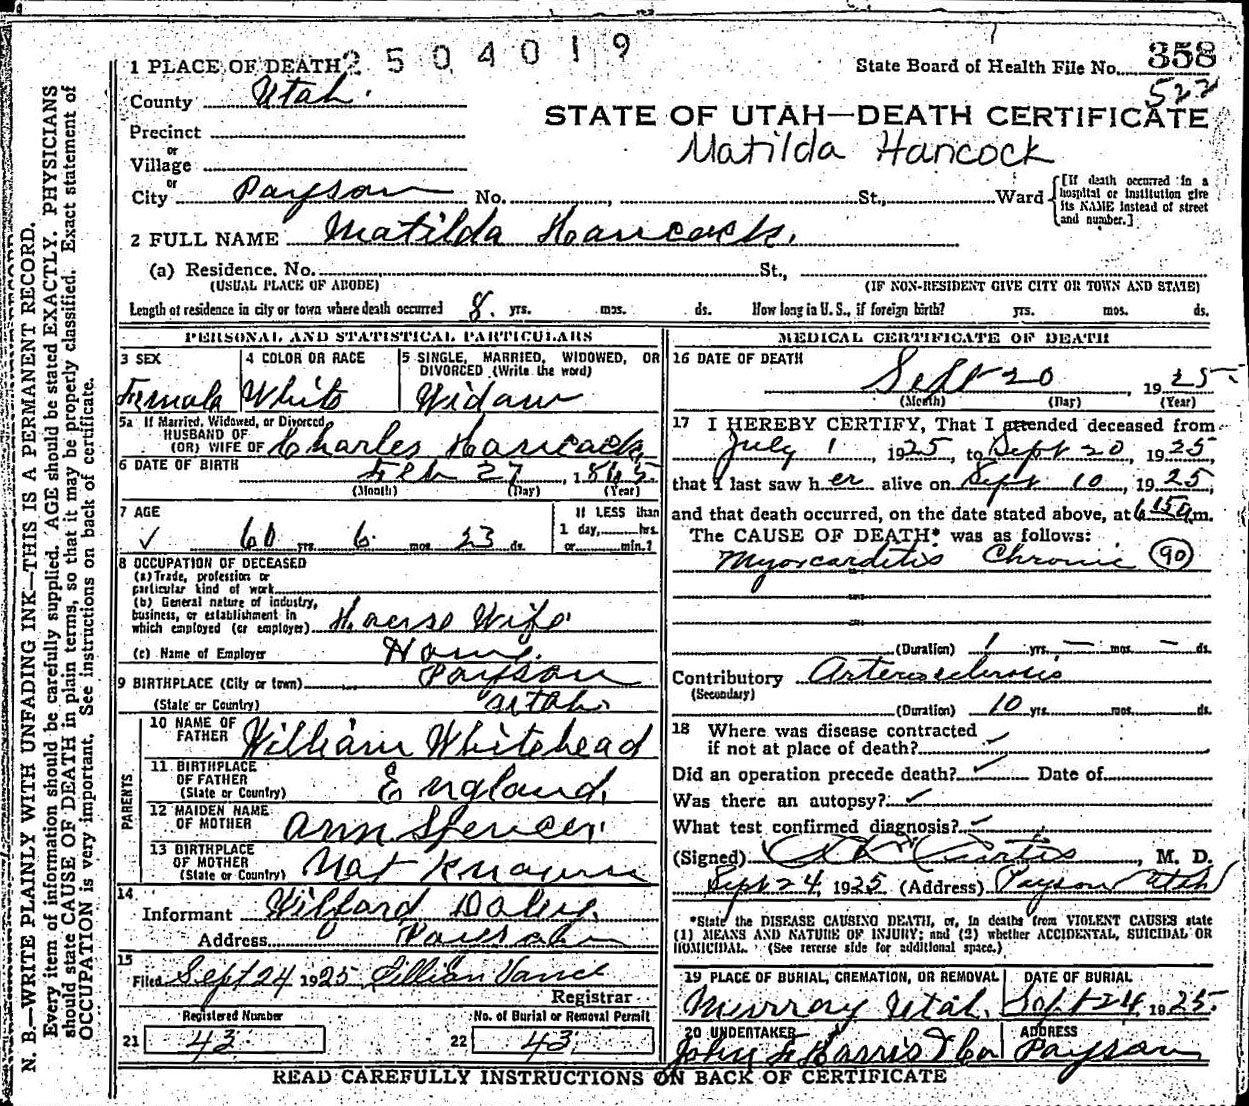 2504019
State Board of Health File No. 358
522
1 PLACE OF DEATH
County Utah.
STATE OF UTAH—DEATH CERTIFICATE
Matilda Hancock
Precinct
or
Village
or
City Payson No. , St., Ward
[If death occurred in a hospital or institution give its NAME instead of street and number.]
2 FULL NAME Matilda Hancock.
(a) Residence. No. St.,
(USUAL PLACE OF ABODE) (IF NON-RESIDENT GIVE CITY OR TOWN AND STATE)
Length of residence in city or town where death occurred 8. yrs. mos. ds. How long in U. S., if foreign birth? yrs. mos. ds.
PERSONAL AND STATISTICAL PARTICULARS
3 SEX
Female
4 COLOR OR RACE
White
5 SINGLE, MARRIED, WIDOWED, OR
DIVORCED (Write the word)
Widow
5a If Married, Widowed, or Divorced
HUSBAND OF
(OR) WIFE OF Charles Hancock
6 DATE OF BIRTH
Feb 27, 1865
(Month) (Day) (Year)
7 AGE
✓ 60 yrs. 6 mos. 23 ds.
If LESS than
1 day, hrs.
or min.?
8 OCCUPATION OF DECEASED
(a) Trade, profession or
particular kind of work
(b) General nature of industry,
business, or establishment in
which employed (or employer) House Wife
(c) Name of Employer Home.
9 BIRTHPLACE (City or town) Payson
(State or Country) Utah.
PARENTS
10 NAME OF
FATHER William Whitehead
11 BIRTHPLACE
OF FATHER
(State or Country) England.
12 MAIDEN NAME
OF MOTHER Ann Spencer
13 BIRTHPLACE
OF MOTHER
(State or Country) Not Known
14
Informant Wilford Daley.
Address Payson
15
Filed Sept 24 1925 Lillian Vance
Registrar
Registered Number
21 43
No. of Burial or Removal Permit
22 43
MEDICAL CERTIFICATE OF DEATH
16 DATE OF DEATH
Sept 20 1925
(Month) (Day) (Year)
17 I HEREBY CERTIFY, That I attended deceased from
July 1, 1925, to Sept 20, 1925,
that I last saw her alive on Sept 10, 1925,
and that death occurred, on the date stated above, at 6 15 a.m.
The CAUSE OF DEATH* was as follows:
Myorcarditis Chronic 90
(Duration) 1 yrs. — mos. — ds.
Contributory Arterosclerosis
(Secondary)
(Duration) 10 yrs. mos. ds.
18 Where was disease contracted
if not at place of death? ✓
Did an operation precede death? ✓ Date of
Was there an autopsy? ✓
What test confirmed diagnosis? ✓
(Signed) Curtis, M. D.
Sept 24, 1925 (Address) Payson Utah
*State the DISEASE CAUSING DEATH, or, in deaths from VIOLENT CAUSES state
(1) MEANS AND NATURE OF INJURY; and (2) whether ACCIDENTAL, SUICIDAL OR
HOMICIDAL. (See reverse side for additional space.)
19 PLACE OF BURIAL, CREMATION, OR REMOVAL
Murray Utah.
DATE OF BURIAL
Sept 24 1925
20 UNDERTAKER
John F Harris & Co
ADDRESS
Payson
READ CAREFULLY INSTRUCTIONS ON BACK OF CERTIFICATE
N. B.—WRITE PLAINLY WITH UNFADING INK—THIS IS A PERMANENT RECORD.
Every item of information should be carefully supplied. AGE should be stated EXACTLY. PHYSICIANS
should state CAUSE OF DEATH in plain terms, so that it may be properly classified. Exact statement of
OCCUPATION is very important. See instructions on back of certificate.